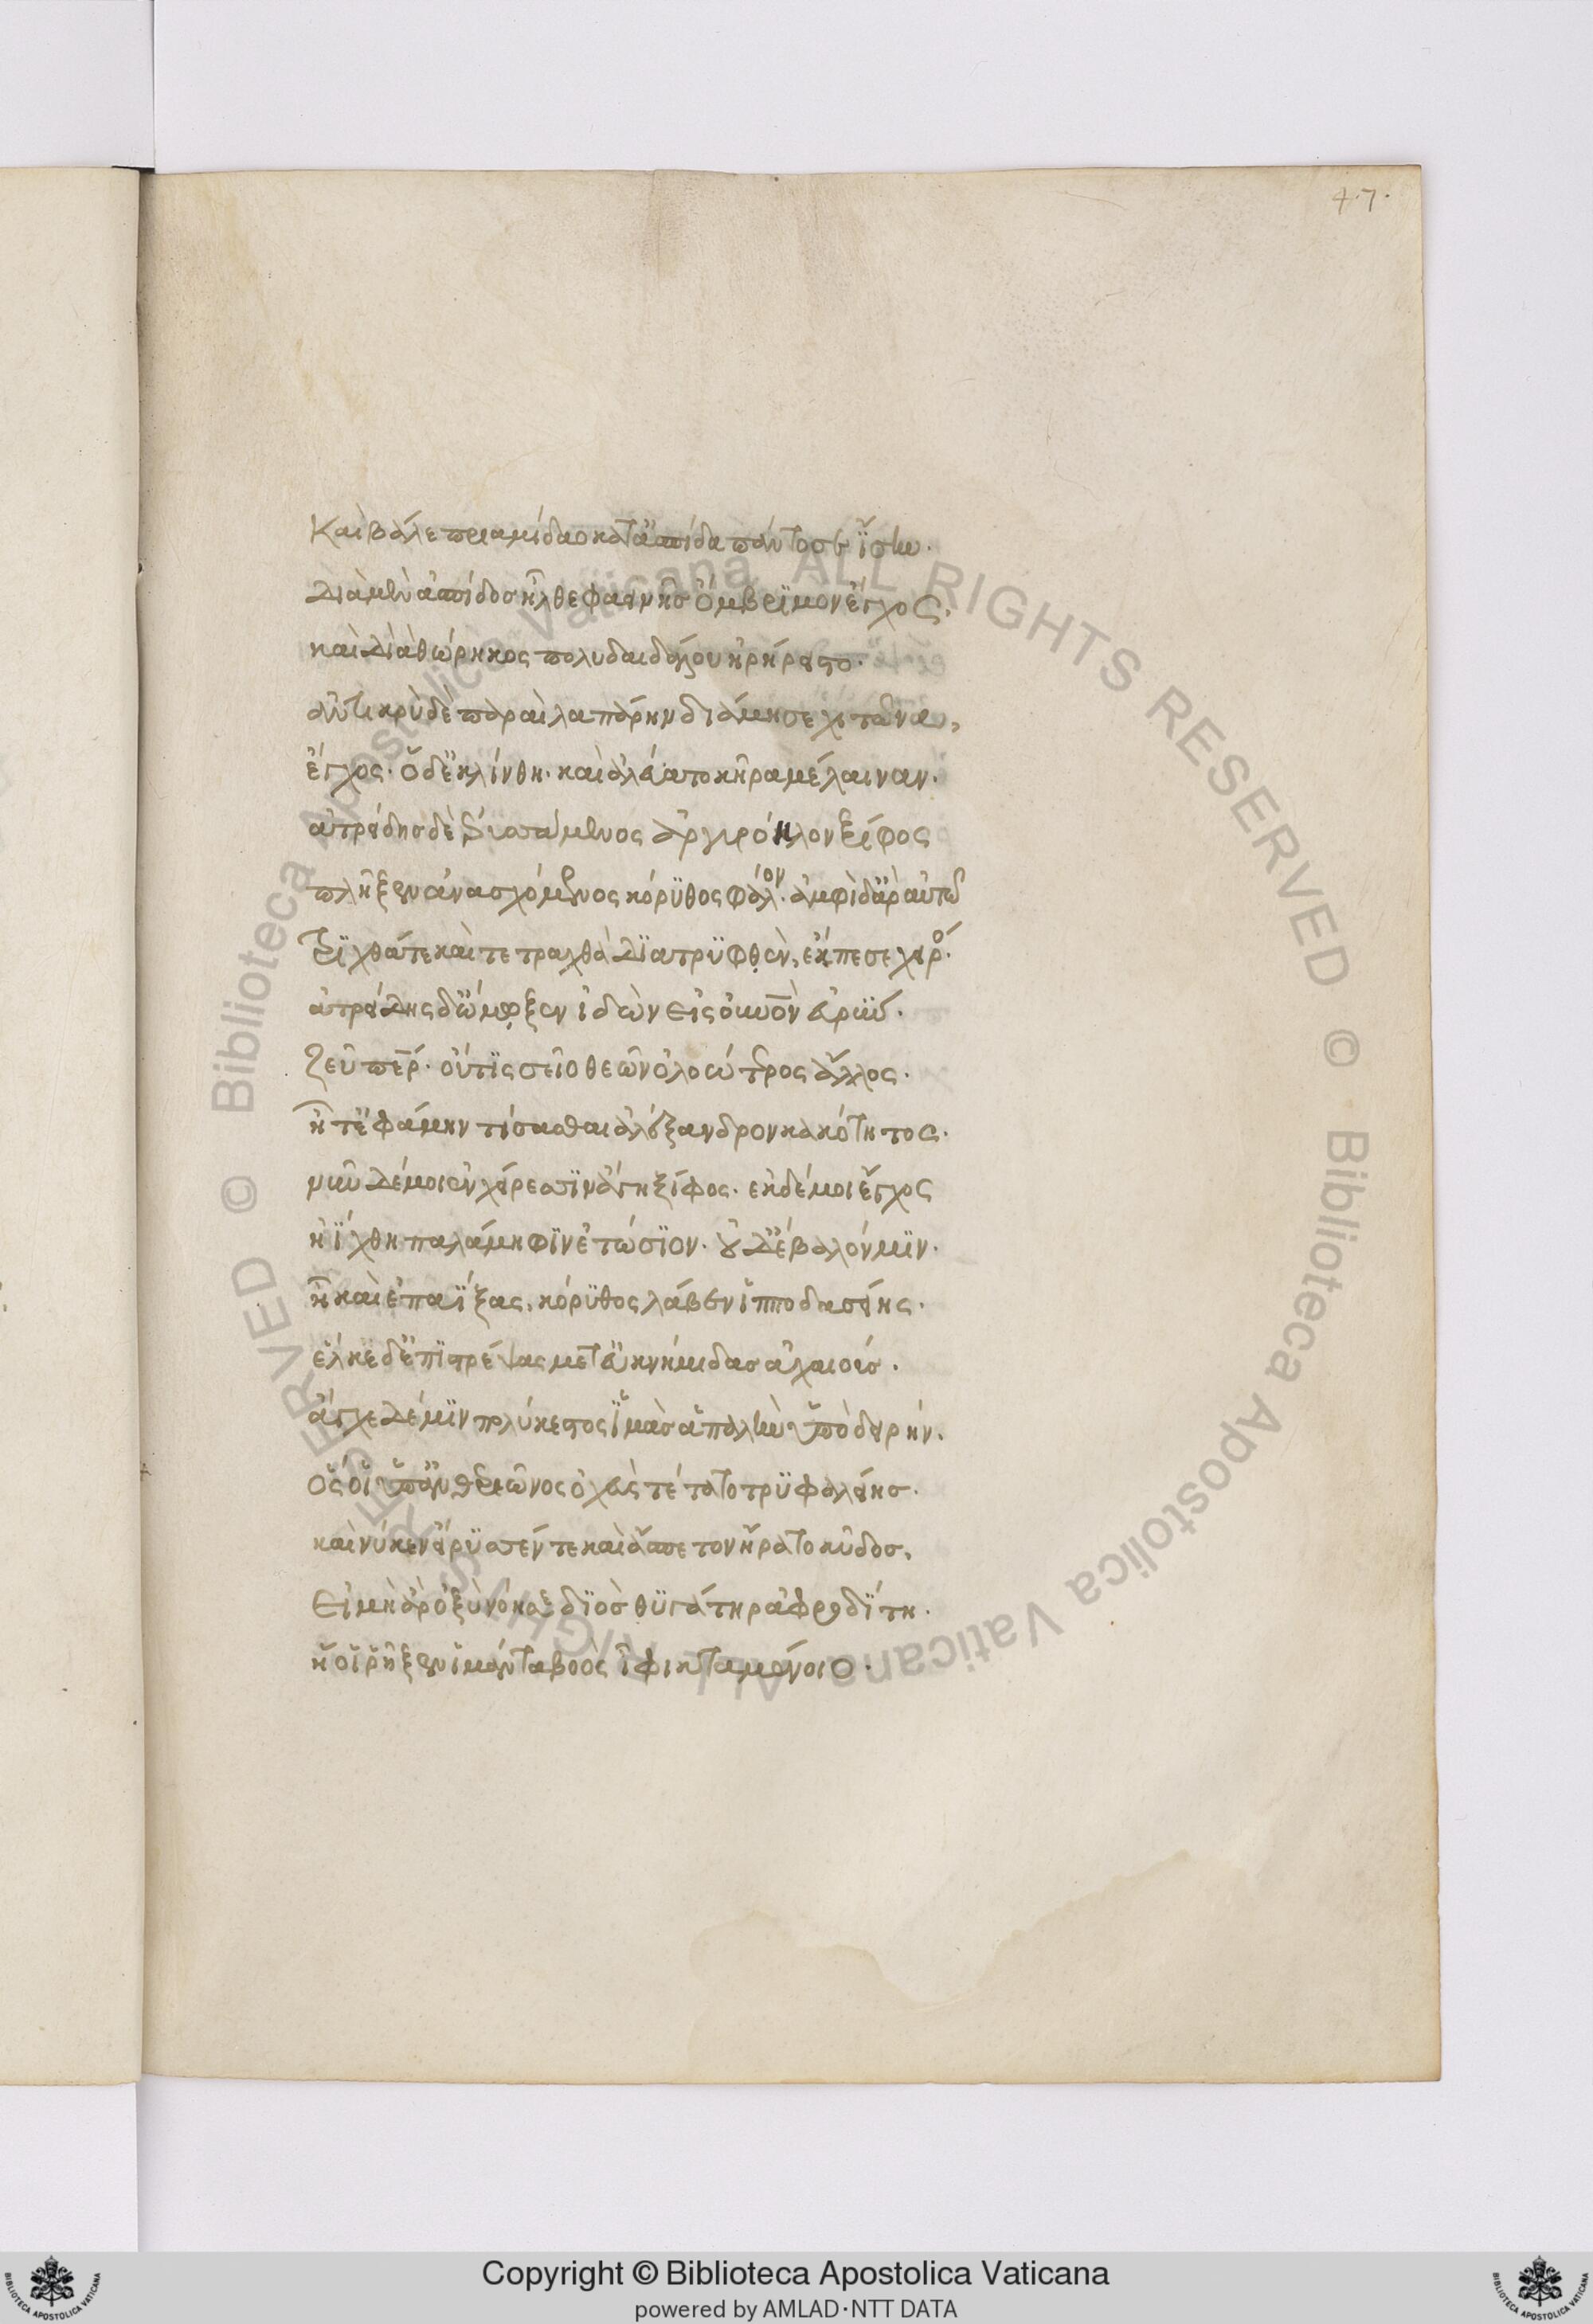 47.
Καὶ βάλε πριαμίδαο κατ' ἀσπίδα πάντοσ' ἐΐσην.
διὰ μὲν ἀσπίδος ἦλθε φαεινῆς ὄμβριμον ἔγχος.
καὶ διὰ θώρηκος πολυδαιδάλου ἠρήρειστο.
ἀντικρὺ δὲ παραὶ λαπάρην διάμησε χιτῶνα,
ἔγχος. ὁ δ' ἐκλίνθη. καὶ ἀλεύατο κῆρα μέλαιναν.
ἀτρείδης δὲ ἐρυσσάμενος ἀργυρόηλον ξίφος
πλῆξεν ἀνασχόμενος κόρυθος φάλον. ἀμφὶ δ' ἄρ' αὐτῶ
τριχθά τε καὶ τετραχθὰ διατρυφθὲν, ἔκπεσε χειρός.
ἀτρείδης δ' ὤμωξεν ἰδὼν εἰς οὐρανὸν εὐρύν.
Ζεῦ πάτερ. οὔτις σεῖο θεῶν ὀλοώτερος ἄλλος.
ἦ τ' ἐφάμην τίσασθαι ἀλέξανδρον κακότητος.
νῦν δέ μοι ἐν χείρεσσιν ἄγη ξίφος. ἐκ δέ μοι ἔγχος
ἠΐχθη παλάμηφιν ἐτώσιον. οὐδ' ἔβαλόν μιν.
ἦ καὶ ἐπαΐξας, κόρυθος λάβεν ἱπποδασείης.
ἕλκε δ' ἐπιστρέψας μετ' ἐϋκνήμιδας ἀχαιούς.
ἄγχε δέ μιν πολύκεστος ἱμὰς ἁπαλὴν ὑπὸ δειρήν.
ὅς οἱ ὑπ' ἀνθερεῶνος ὀχεὺς τέτατο τρυφαλείης.
καὶ νύ κεν εἴρυσσέν τε καὶ ἄσπετον ἤρατο κῦδος,
Εἰ μὴ ἄρ' ὀξὺ νόησε διὸς θυγάτηρ ἀφροδίτη.
ἥ οἱ ῥῆξεν ἱμάντα βοὸς ἶφι κταμένοιο.
Copyright © Biblioteca Apostolica Vaticana
powered by AMLAD·NTT DATA